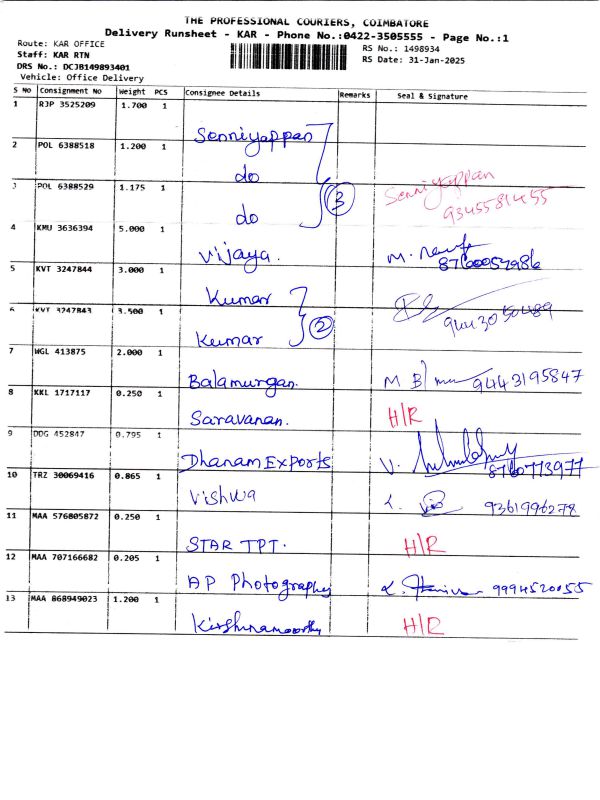 THE PROFESSIONAL COURIERS, COIMBATORE
Delivery Runsheet - KAR - Phone No.:0422-3505555 - Page No.:1
Route: KAR OFFICE
RS No.: 1498934
Staff: KAR RTN
RS Date: 31-Jan-2025
DRS No.: DCJB149893401
Vehicle: Office Delivery
S No Consignment No Weight PCS Consignee Details Remarks Seal & Signature
1 RJP 3525209 1.700 1 Senniyappan
2 POL 6388518 1.200 1 do
3 POL 6388529 1.175 1 do 3 Senniyappan 9345581455
4 KMU 3636394 5.000 1 Vijaya. M. 8760054986
5 KVT 3247844 3.000 1 Kumar
6 KVT 3247843 3.500 1 Kumar 2 9443050489
7 WGL 413875 2.000 1 Balamurgan. M B 9443195847
8 KKL 1717117 0.250 1 Saravanan. H/R
9 DDG 452847 0.795 1 Dhanam Exports V. 8760773977
10 TRZ 30069416 0.865 1 Vishwa 9361996278
11 MAA 576805872 0.250 1 STAR TPT. H/R
12 MAA 707166682 0.205 1 AP Photography 9994520055
13 MAA 868949023 1.200 1 Kirshnamoorthy H/R